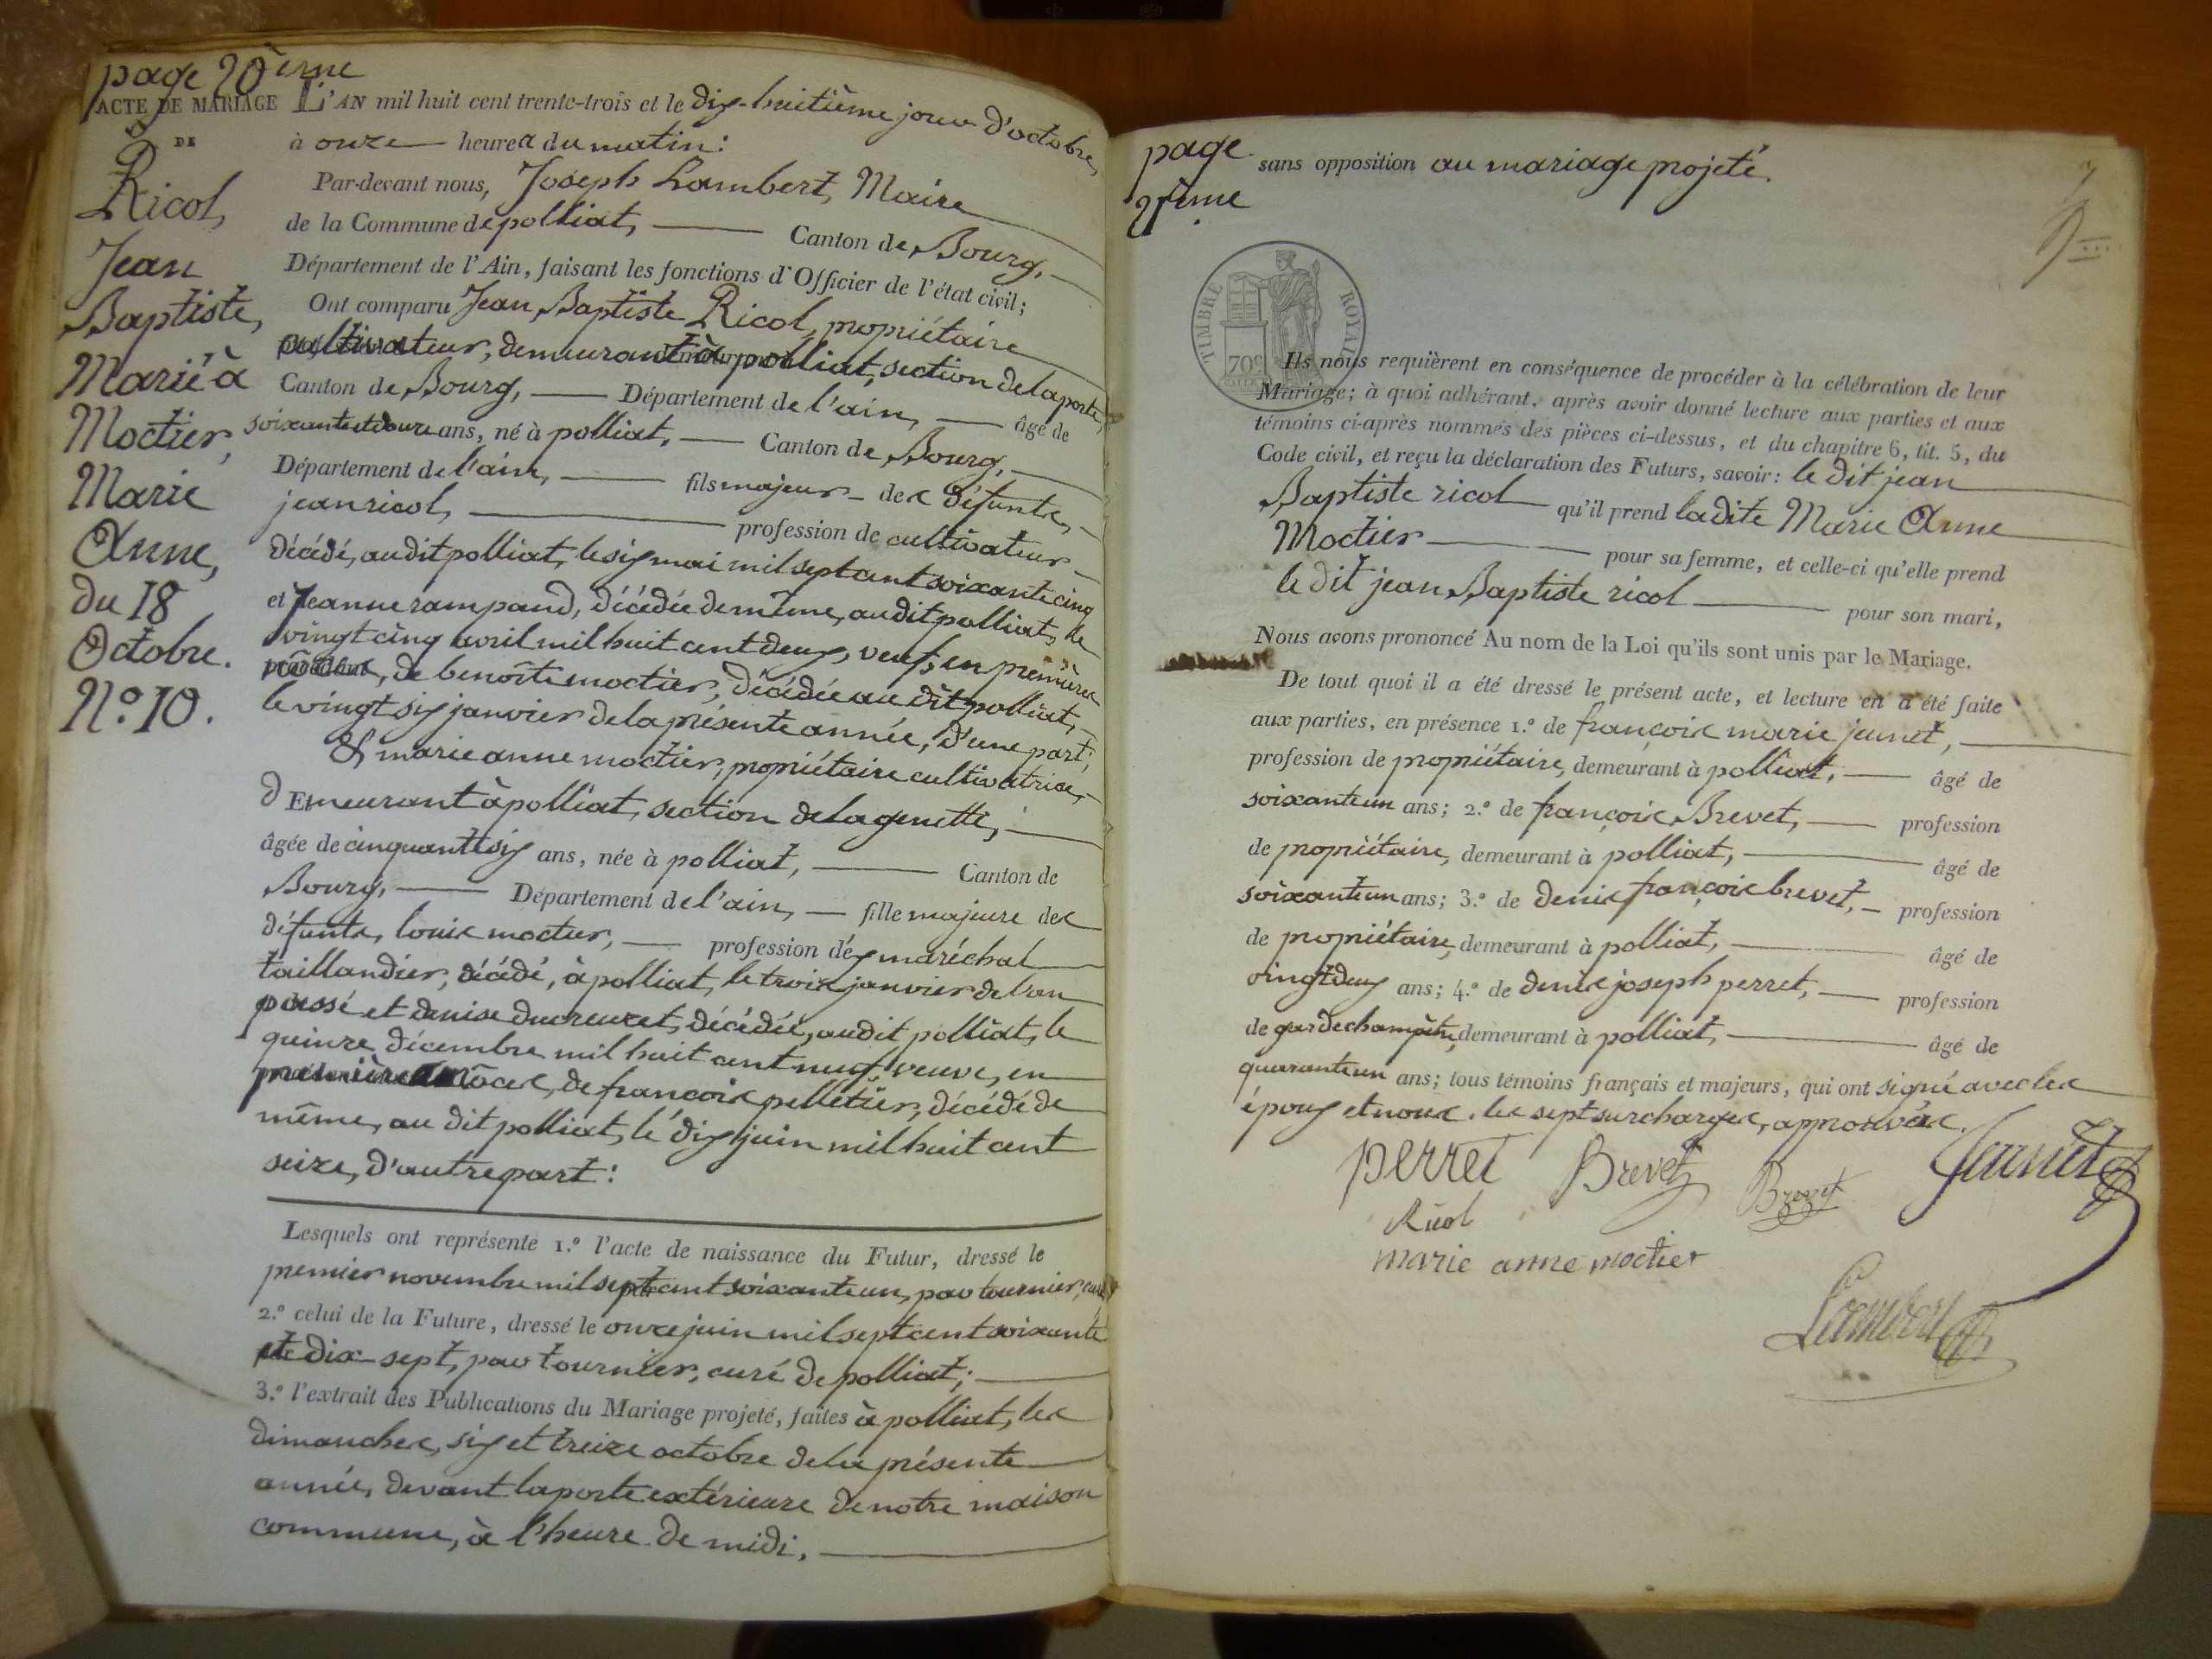 page 20ème
ACTE DE MARIAGE
DE
Ricol,
Jean
Baptiste,
Marié à
Moctier,
Marie
Anne,
du 18
Octobre.
N.o 10.
L'AN mil huit cent trente-trois et le dix-huitième jour d'octobre,
à onze heures du matin:
Par-devant nous, Joseph Lambert, Maire
de la Commune de polliat, Canton de Bourg,
Département de l'Ain, faisant les fonctions d'Officier de l'état civil;
Ont comparu Jean Baptiste Ricol, propriétaire
cultivateur, demeurant à polliat, section de la porte,
Canton de Bourg, Département de l'ain, âgé de
soixante et douze ans, né à polliat, Canton de Bourg,
Département de l'ain, fils majeur des défunts,
jean ricol, profession de cultivateur
décédé, audit polliat, le six mai mil sept cent soixante cinq
et Jeanne rampand, décédée de même, audit polliat, le
vingt cinq avril mil huit cent deux, veuf, en premières
nôces, de benoîte moctier, décédée au dit polliat,
le vingt six janvier de la présente année, d'une part;
Et marie anne moctier, propriétaire cultivatrice,
dEmeurant à polliat, section de la genette,
âgée de cinquante six ans, née à polliat, Canton de
Bourg, Département de l'ain, fille majeure des
défunts, louis moctier, profession de maréchal
taillandier, décédé, à polliat, le trois janvier de l'an
passé et denise ducreuzet, décédée, audit polliat, le
quinze décembre mil huit cent neuf, veuve, en
premières nôces, de françois pelletier, décédé de
même, au dit polliat, le dix juin mil huit cent
seize, d'autre part:
Lesquels ont représenté 1.o l'acte de naissance du Futur, dressé le
premier novembre mil sept cent soixante un, par tournier, curé
2.o celui de la Future, dressé le onze juin mil sept cent soixante
et dix-sept, par tournier, curé de polliat;
3.o l'extrait des Publications du Mariage projeté, faites à polliat, les
dimanches, six et treize octobre de la présente
année, devant la porte extérieure de notre maison
commune, à l'heure de midi,
page
21ème
sans opposition au mariage projeté.
TIMBRE ROYAL
70c
Ils nous requièrent en conséquence de procéder à la célébration de leur
Mariage; à quoi adhérant, après avoir donné lecture aux parties et aux
témoins ci-après nommés des pièces ci-dessus, et du chapitre 6, tit. 5, du
Code civil, et reçu la déclaration des Futurs, savoir: le dit jean
Baptiste ricol qu'il prend ladite Marie Anne
Moctier pour sa femme, et celle-ci qu'elle prend
le dit jean Baptiste ricol pour son mari,
Nous avons prononcé Au nom de la Loi qu'ils sont unis par le Mariage.
De tout quoi il a été dressé le présent acte, et lecture en a été faite
aux parties, en présence 1.o de françois marie jeunet,
profession de propriétaire, demeurant à polliat, âgé de
soixante un ans; 2.o de françois Brevet, profession
de propriétaire, demeurant à polliat, âgé de
soixante un ans; 3.o de denis françois brevet, profession
de propriétaire, demeurant à polliat, âgé de
vingt deux ans; 4.o de denis joseph perret, profession
de garde champêtre, demeurant à polliat, âgé de
quarante un ans; tous témoins français et majeurs, qui ont signé avec les
époux et nous. les sept surcharges, approuvées.
perret Brevet Brevet Jeunet
Ricol
marie anne moctier
Lambert